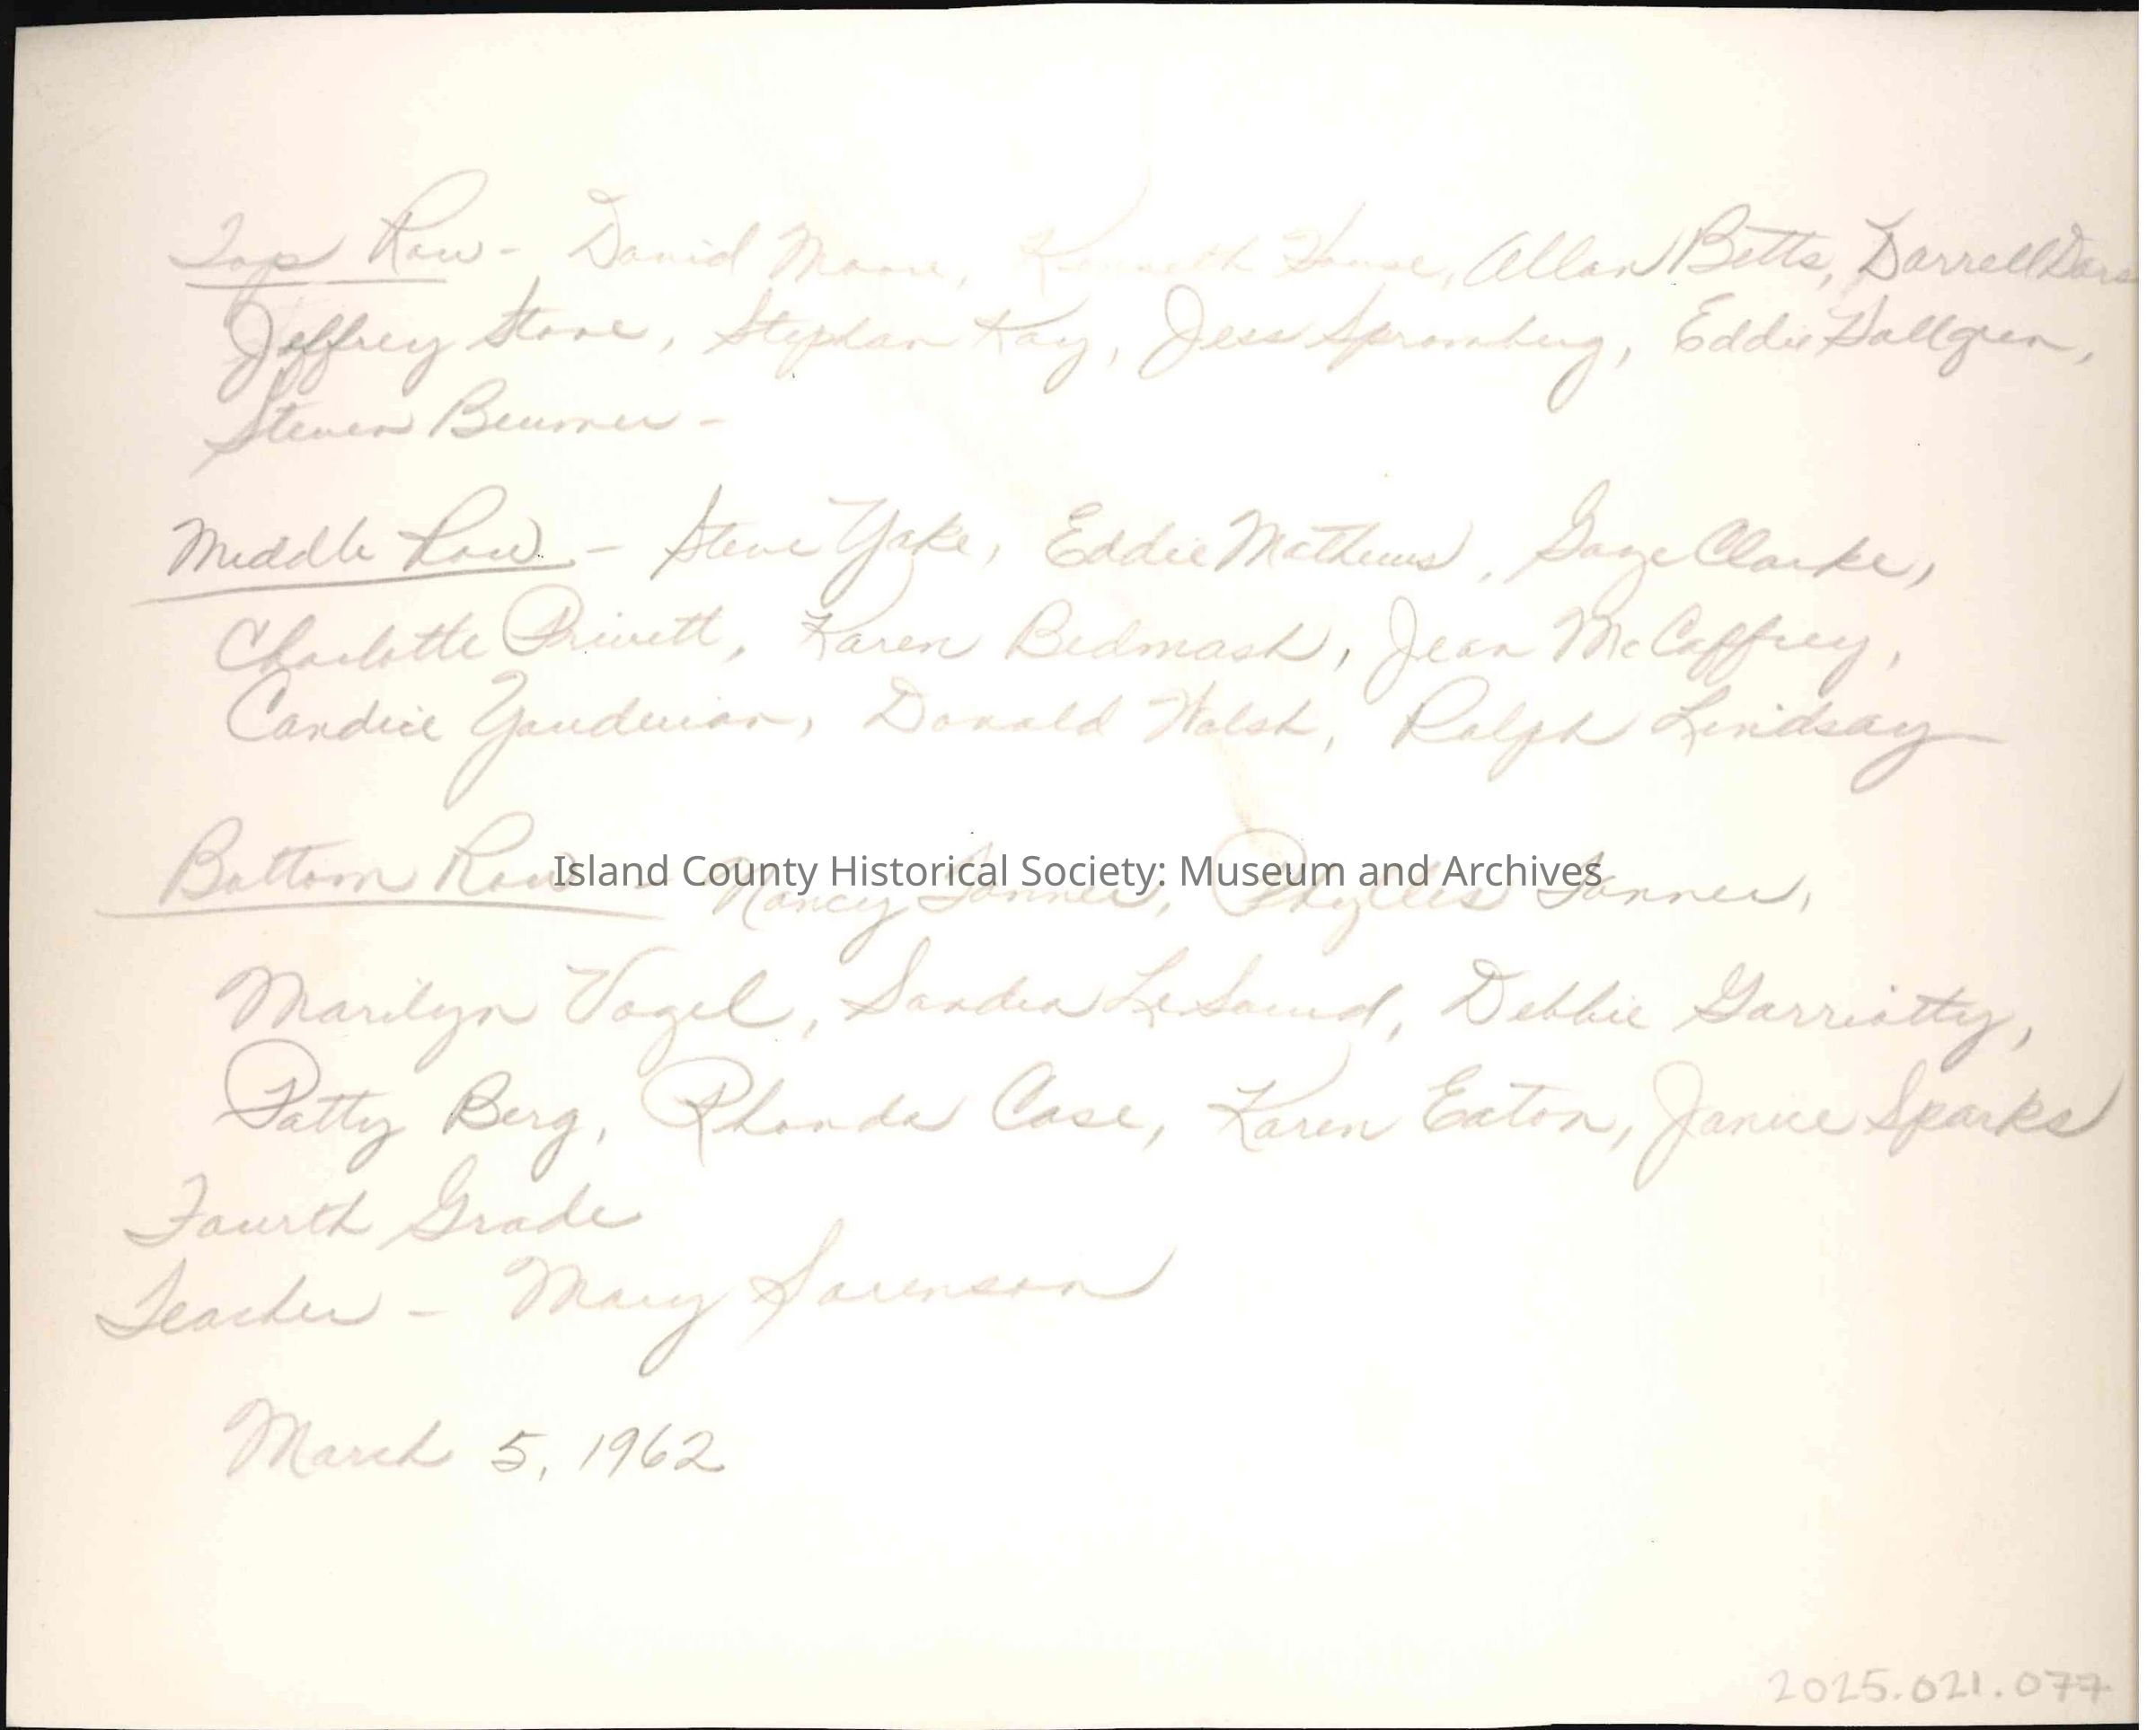 Top Row - David Moore, Kenneth House, Allan Betts, Darrell
Jeffrey Stone, Stephan Kay, Jess Spromberg, Eddie Hallgren,
Steven Beumer -
Middle Row - Steve Yake, Eddie Mathews, Gaye Clarke,
Charlotte Privett, Karen Bedmash, Jean McCaffrey,
Candice Youderian, Donald Walsh, Ralph Lindsay
Bottom Row - Nancy Tanner, Phyllis Tanner,
Island County Historical Society: Museum and Archives
Marilyn Vogel, Sandra LeSound, Debbie Garriotty,
Patty Berg, Rhonda Case, Karen Eaton, Janice Sparks
Fourth Grade
Teacher - Mary Sorenson
March 5, 1962
2025.021.077